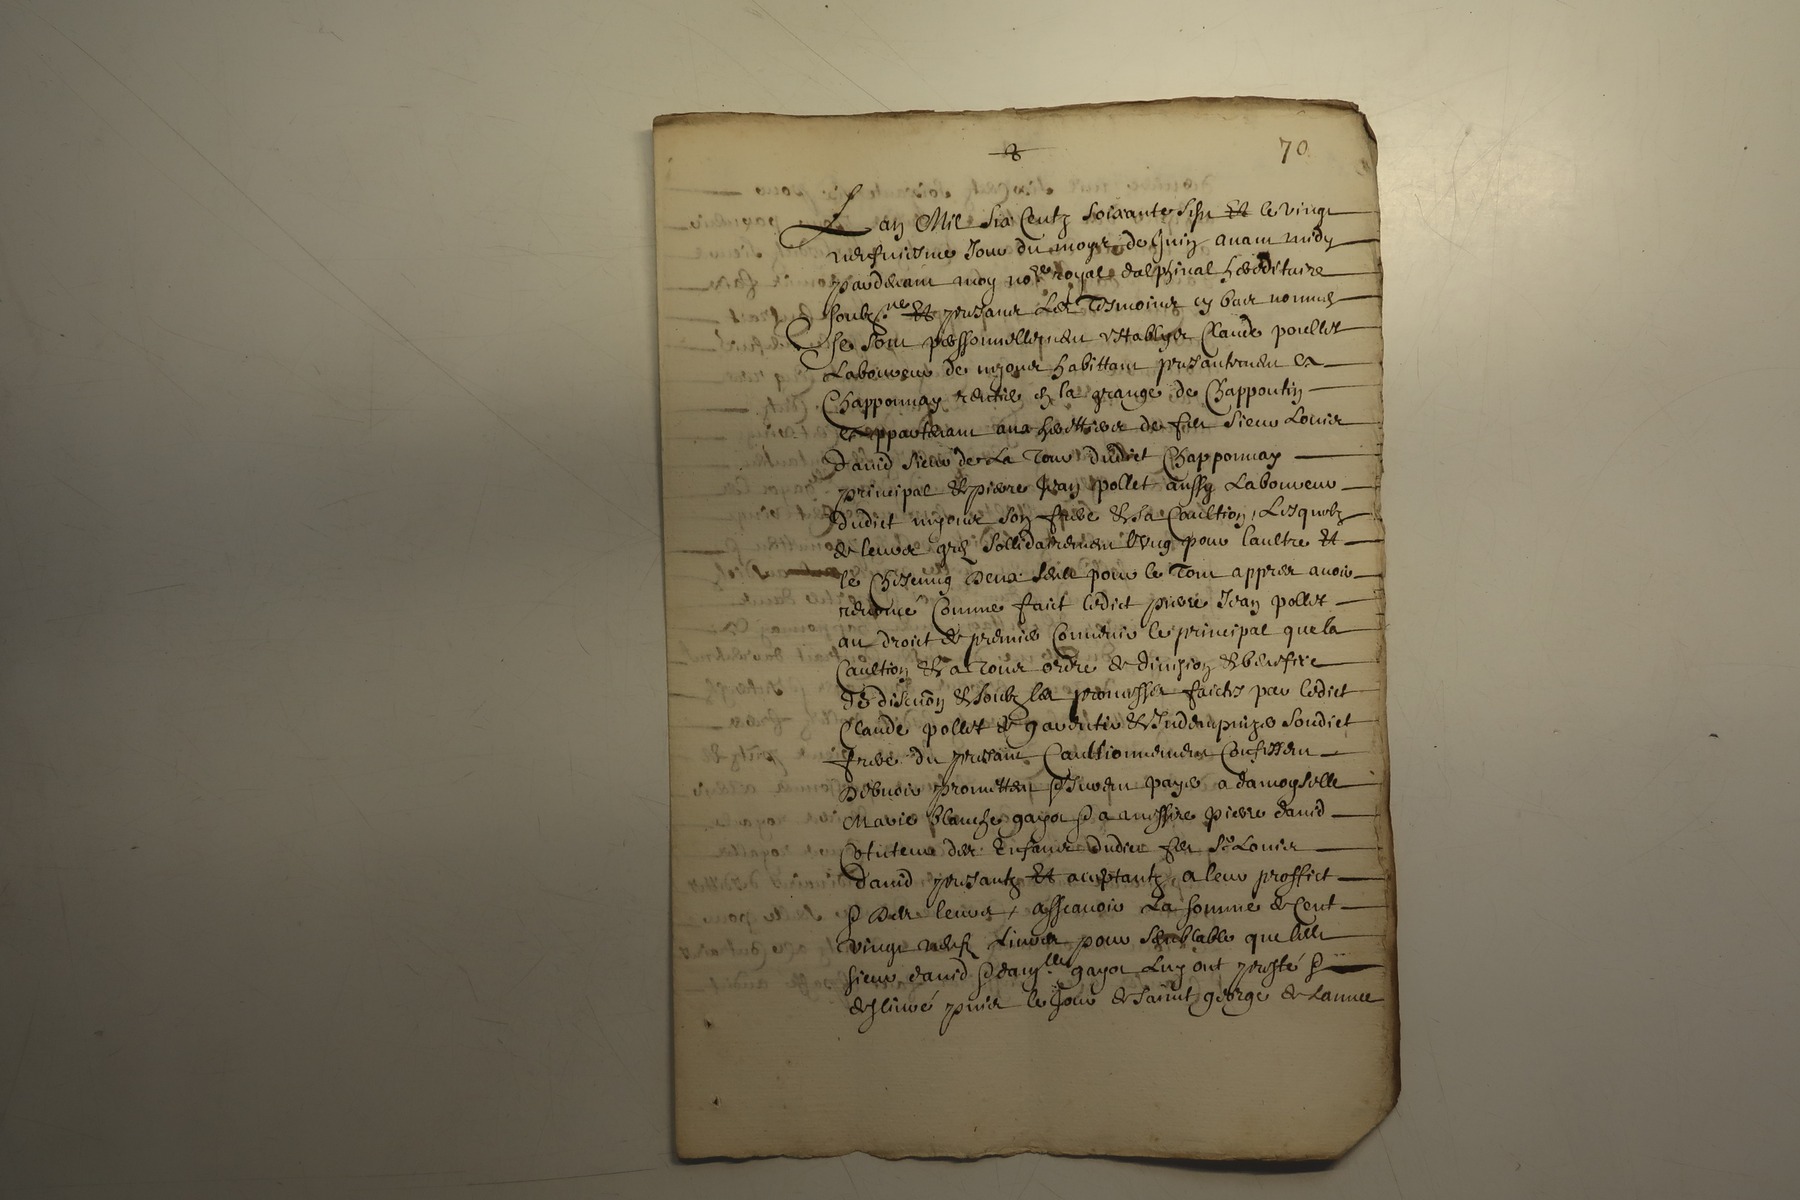 70
Lan Mil Six Centz soixante sept et le vingt
neufuiesme Jour du moys de Juin auant midy
pardeuant moy no.re royal dalphinal hereditaire
soubz.né et presans Les Tesmoins cy bas nommes
se sont personnellement establyes Claude pollet
Laboureur de mions habittant presantement a
Chapponnay rentier en la grange de Chappotin
appartenant aux herittiers de feu sieur Louis
dauid sieur de La Tour dudict Chapponnay
principal et pierre Jean pollet aussy Laboureur
dudict mions son frere et sa Caultion, Lesquels
de leurs grez sollidairement lung pour laultre et
le Chescung deux seul pour le Tout appres auoir
renoncé Comme faict ledict pierre Jean pollet
au droict de premier Conuenir le principal que la
Caultion et a Tous ordre de diuision et benefice
de discuon et soubz les promesses faictes par ledict
Claude pollet de garentir et Indempnizer sondict
frere du presant Caultionnement Confessent
Debuoir promettent et Jurent payer a damoyselle
Marie blanche gayot et a messire pierre dauid
Cotuteur des Enfans dudict feu S.r Louis
dauid presantz et acceptantz a leur proffict
et des leurs / asscauoir La somme de Cent
vingt neuf Liures pour semblable que lesd
sieur dauid et dam.lle gayot Luy ont presté et
deslivré puis le Jour de saint george de Lannee